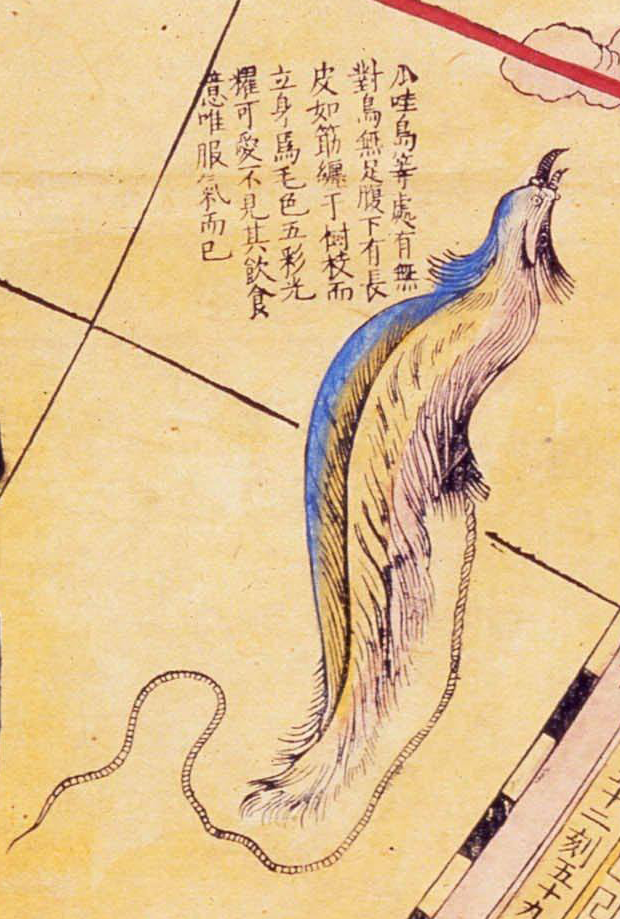 瓜哇島等處有無
對鳥無足腹下有長
皮如筋纏于樹枝而
立身焉毛色五彩光
耀可愛不見其飲食
意唯服氣而已
十二刻五十九